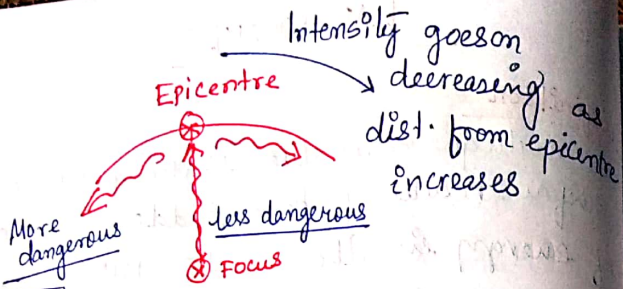 Intensity goes on
decreasing as
dist. from epicentre
increases
Epicentre
More
dangerous
less dangerous
Focus